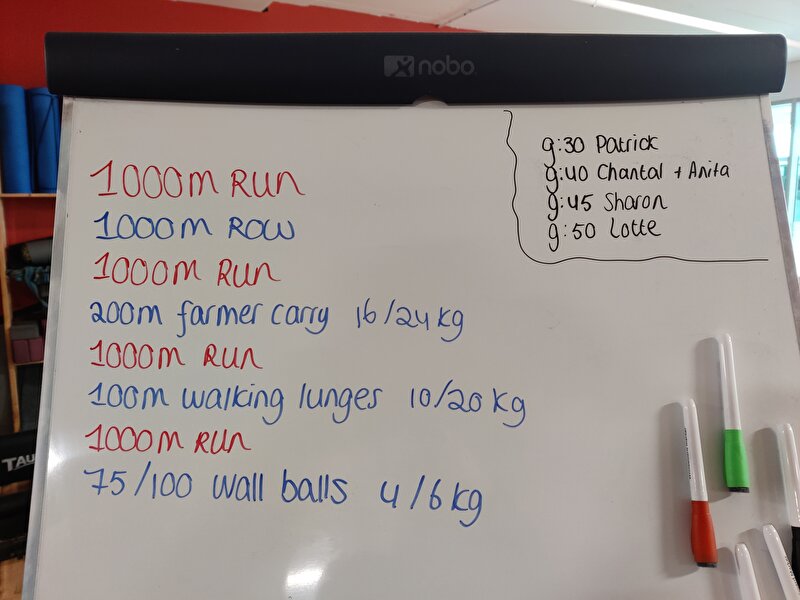 nobo
9:30 Patrick
9:40 Chantal + Anita
9:45 Sharon
9:50 Lotte
1000m RUN
1000m ROW
1000m RUN
200m farmer carry 16/24 kg
1000m RUN
100m walking lunges 10/20 kg
1000m RUN
75/100 wall balls 4/6 kg